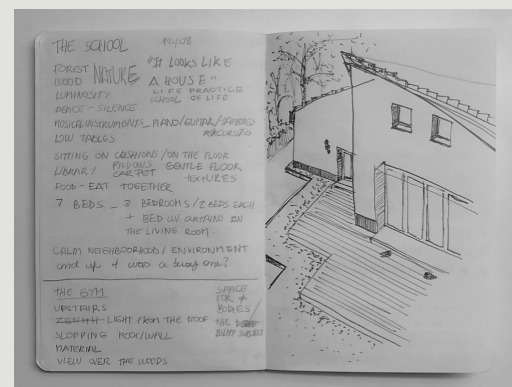 THE SCHOOL
FOREST NATURE "IT LOOKS LIKE
WOOD A HOUSE"
LUMINOSITY LIFE PRACTICE
SCHOOL OF LIFE
PEACE - SILENCE
MUSICAL INSTRUMENTS_ PIANO/GUITAR/
LOW TABLES
SITTING ON CUSHIONS / ON THE FLOOR
LIBRARY PILLOWS GENTLE FLOOR
CARPET TEXTURES
FOOD - EAT TOGETHER
7 BEDS _ 3 BEDROOMS / 2 BEDS EACH
+ BED W/ ON
THE LIVING ROOM _
CALM NEIGHBOORHOOD / ENVIRONMENT
and if it was a busy one?
THE GYM
UPSTAIRS
ZENITH LIGHT FROM THE ROOF
SLOPPING ROOF/WALL
MATERIAL
VIEW OVER THE WOODS
SPACE
FOR ≠
BODIES
THE
SUBJECT